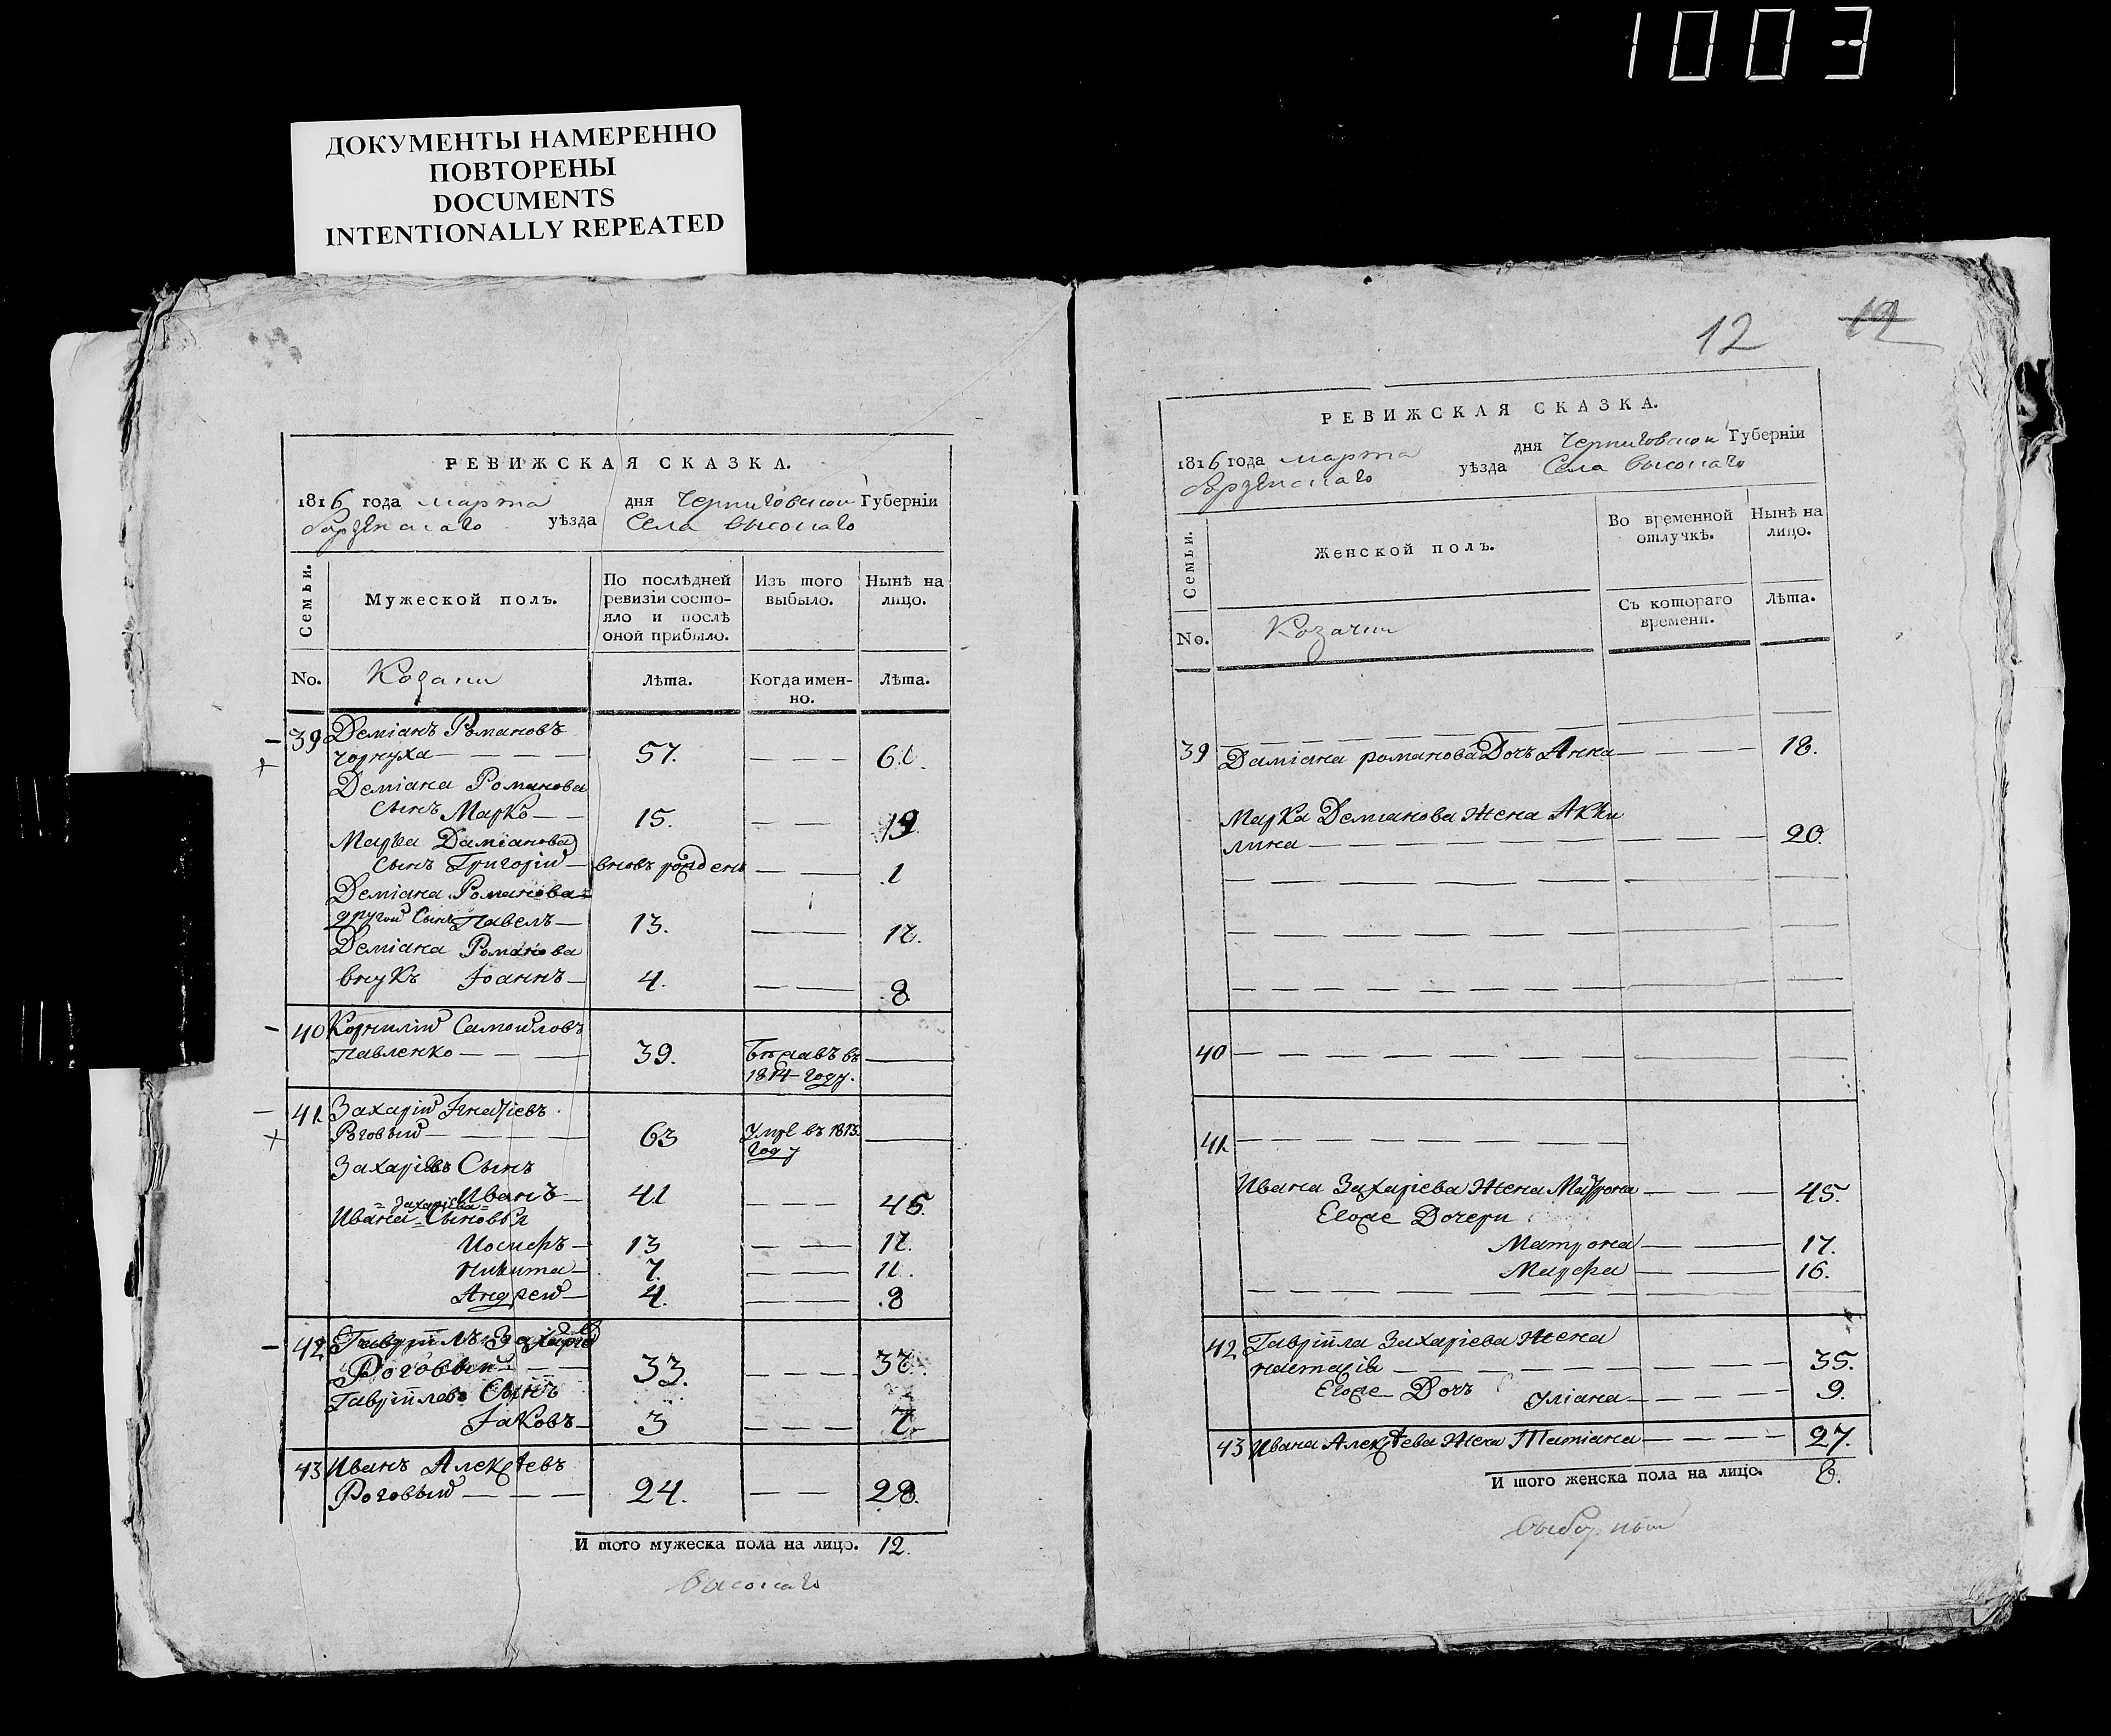 1003
ДОКУМЕНТЫ НАМЕРЕННО
ПОВТОРЕНЫ
DOCUMENTS
INTENTIONALLY REPEATED
РЕВИЖСКАЯ СКАЗКА.
1816 года марта дня Черниговской Губерніи
Борзенскаго уѣзда Села высокаго
Семьи.
Мужеской полъ.
По послѣдней
ревизіи состо-
яло и послѣ
оной прибыло.
Изъ того
выбыло.
Нынѣ на
лицо.
No.
Козаки
Лѣта.
Когда имен-
но.
Лѣта.
39 Деміанъ Романовъ
чорнуха 57. 61.
Деміана Романова
Сынъ Марко 15. 19
Марка Даміанова
Сынъ Григорій вновь рожденъ 1
Деміана Романова
другой Сынъ Павелъ 13. 17.
Деміана Романова
внукъ Іоаннъ 4. 8
40 Корнилій Самойловъ
Павленко 39. Бѣжавъ въ
1814 году.
41 Захарій Игнатіевъ
Роговый 63 Умре въ 1813.
году
Захаріевъ Сынъ
Иванъ 41 45.
Захаріева
Ивана Сыновья
Иосифъ 13 17.
Никита 7. 11.
Андрей 4. 8
42 Гавріилъ Захаріевъ
Роговый 33. 37.
Гавріиловъ Сынъ
Іаковъ 3 7
43 Иванъ Алексѣевъ
Роговый 24. 28.
И того мужеска пола на лицо. 12.
Высокаго
12 12
РЕВИЖСКАЯ СКАЗКА.
1816 года марта дня Черниговской Губерніи
Борзенскаго уѣзда Села высокаго
Семьи.
Женской полъ.
Во временной
отлучкѣ.
Нынѣ на
лицо.
Съ котораго
времени.
Лѣта.
No.
Козачки
39 Даміана романова Дочъ Анна 18.
Марка Деміанова Жена Аки
лина 20.
40
41
Ивана Захаріева Жена Матрона 45.
Егоже Дочери
Матрона 17.
Марфа 16.
42 Гавріила Захаріева Жена
настасія 35.
Егоже Дочъ Уліана 9.
43 Ивана Алексѣева Жена Татіана 27.
И того женска пола на лицо. 8.
выборный